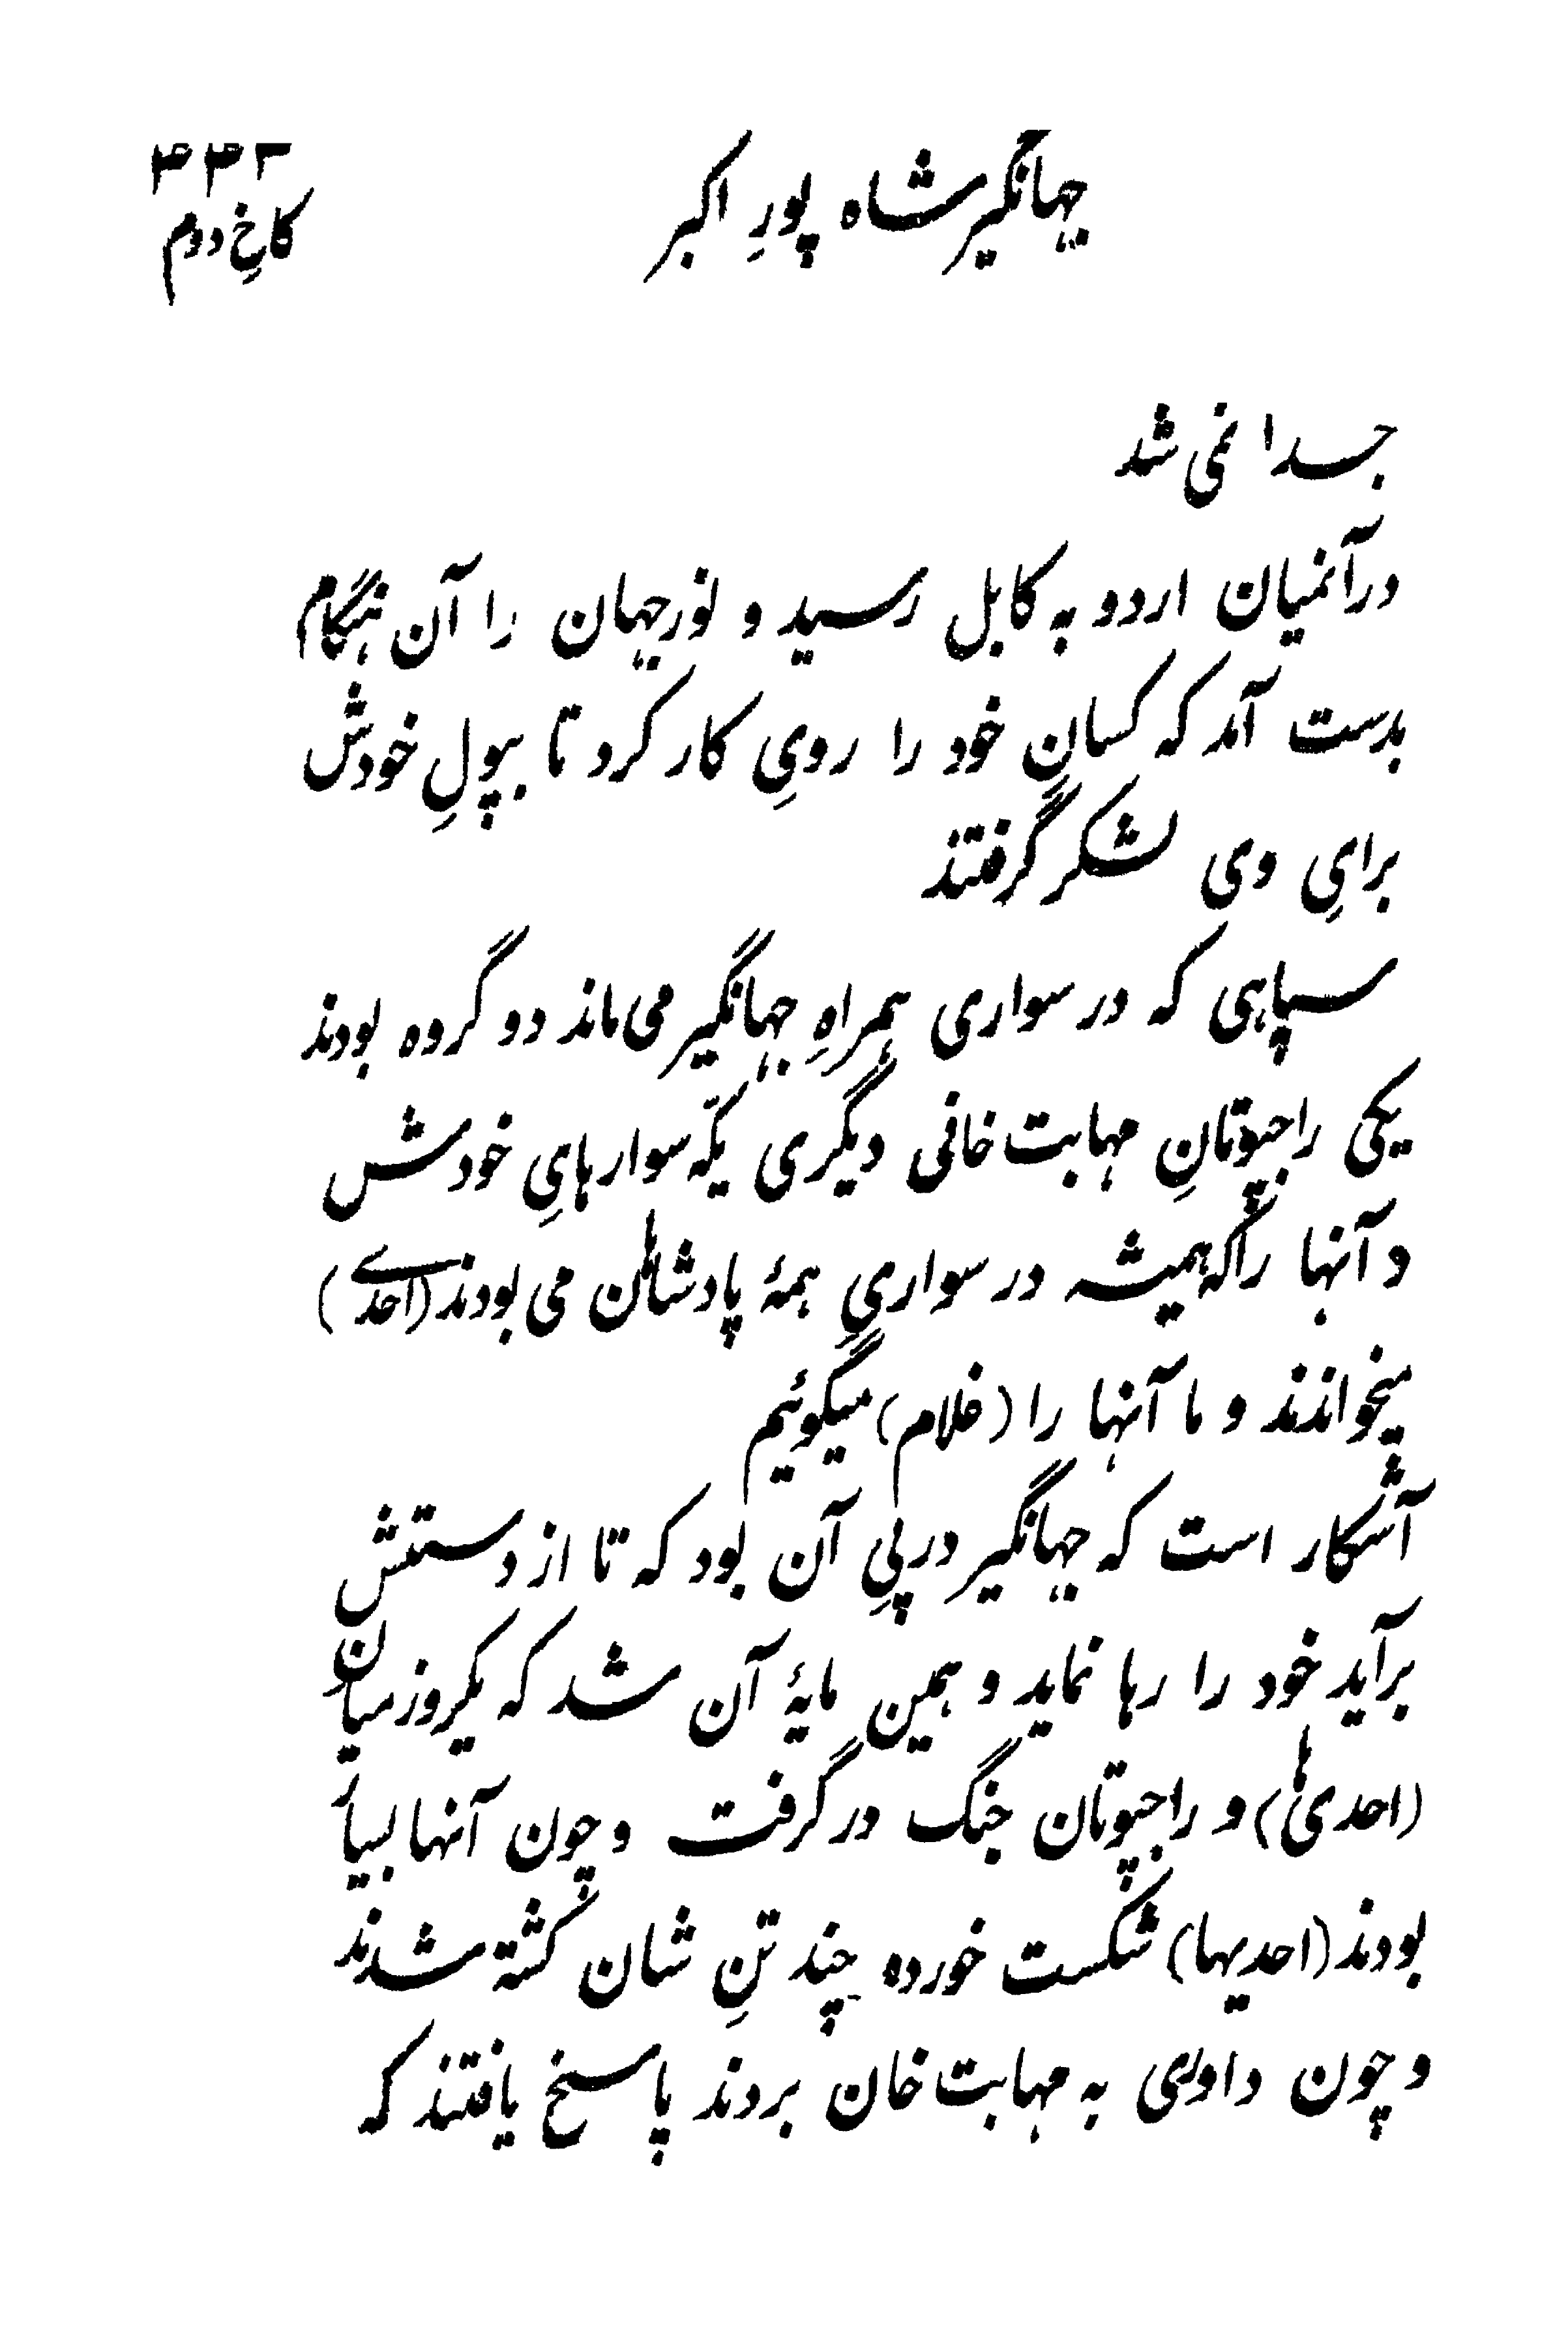 جهانگیرشاه پورِ اکبر
کاخِ دوم
جدا نمی شد
درآنمیان اردو به کابل رسید و نورجهان را آن هنگام
بدست آمد که کسانِ خود را رویِ کار کرد تا بپولِ خودش
برایِ وی لشکر گرفتند
سپاهی که در سواری همراهِ جهانگیر می ماند دو گروه بودند
یکی راجپوتانِ مهابت خانی دیگری یکّه سوارهایِ خودش
و آنها را که همیشه در سواریِ همهٔ پادشاهان می بودند (احدی)
میخواندند و ما آنها را (غلام) میگوئیم
آشکار است که جهانگیر در پیِ آن بود که تا از دستش
برآید خود را رها نماید و همین مایهٔ آن شد که یکروز میانِ
(احدی ها) و راجپوتان جنگ در گرفت و چون آنها بسیار
بودند (احدیها) شکست خورده چند تنِ شان کشته شدند
و چون داوری به مهابت خان بردند پاسخ یافتند که